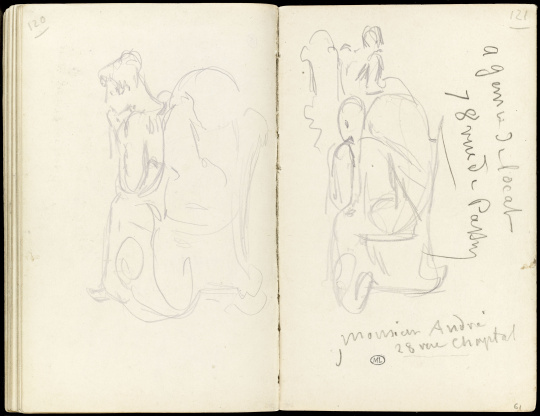 120
121
agence D- locat
78 rue D- Passy
Monsieur André
28 rue Chaptal
ML